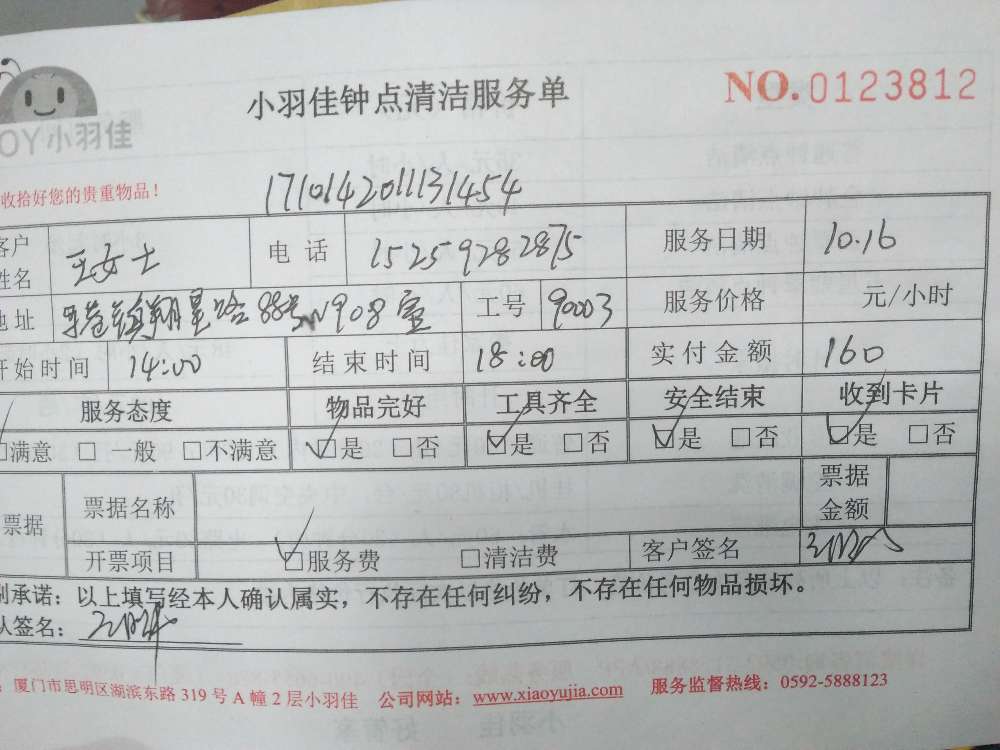 小羽佳钟点清洁服务单
NO.0123812
OY小羽佳
收拾好您的贵重物品!
171014201131454
客户姓名 王女士 电话 15259282875 服务日期 10.16
地址 翔星路88号 908室 工号 90003 服务价格 元/小时
开始时间 14:00 结束时间 18:00 实付金额 160
服务态度 物品完好 工具齐全 安全结束 收到卡片
□满意 □ 一般 □不满意 □是 □否 □是 □否 □是 □否 □是 □否
票据 票据名称 票据金额
开票项目 □服务费 □清洁费 客户签名
别承诺:以上填写经本人确认属实,不存在任何纠纷,不存在任何物品损坏。
人签名:
:厦门市思明区湖滨东路 319 号 A 幢 2 层小羽佳 公司网站:www.xiaoyujia.com 服务监督热线:0592-5888123